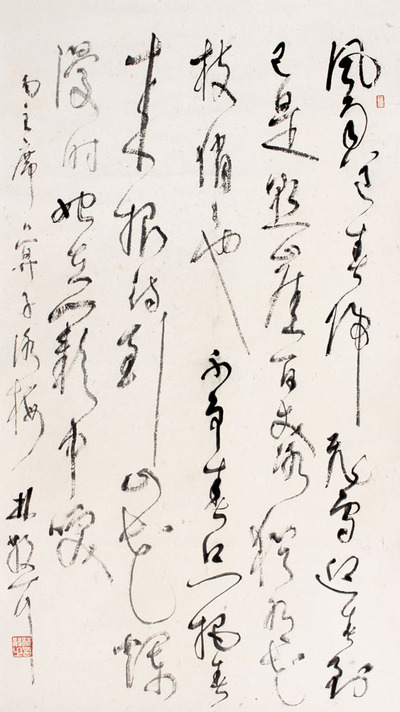 風雨送春归飛雪迎春到
已是懸崖百丈冰猶有花
枝俏也不争春只把春
来报待到山花爛
漫时她在丛中笑
毛主席卜算子詠梅 林散耳